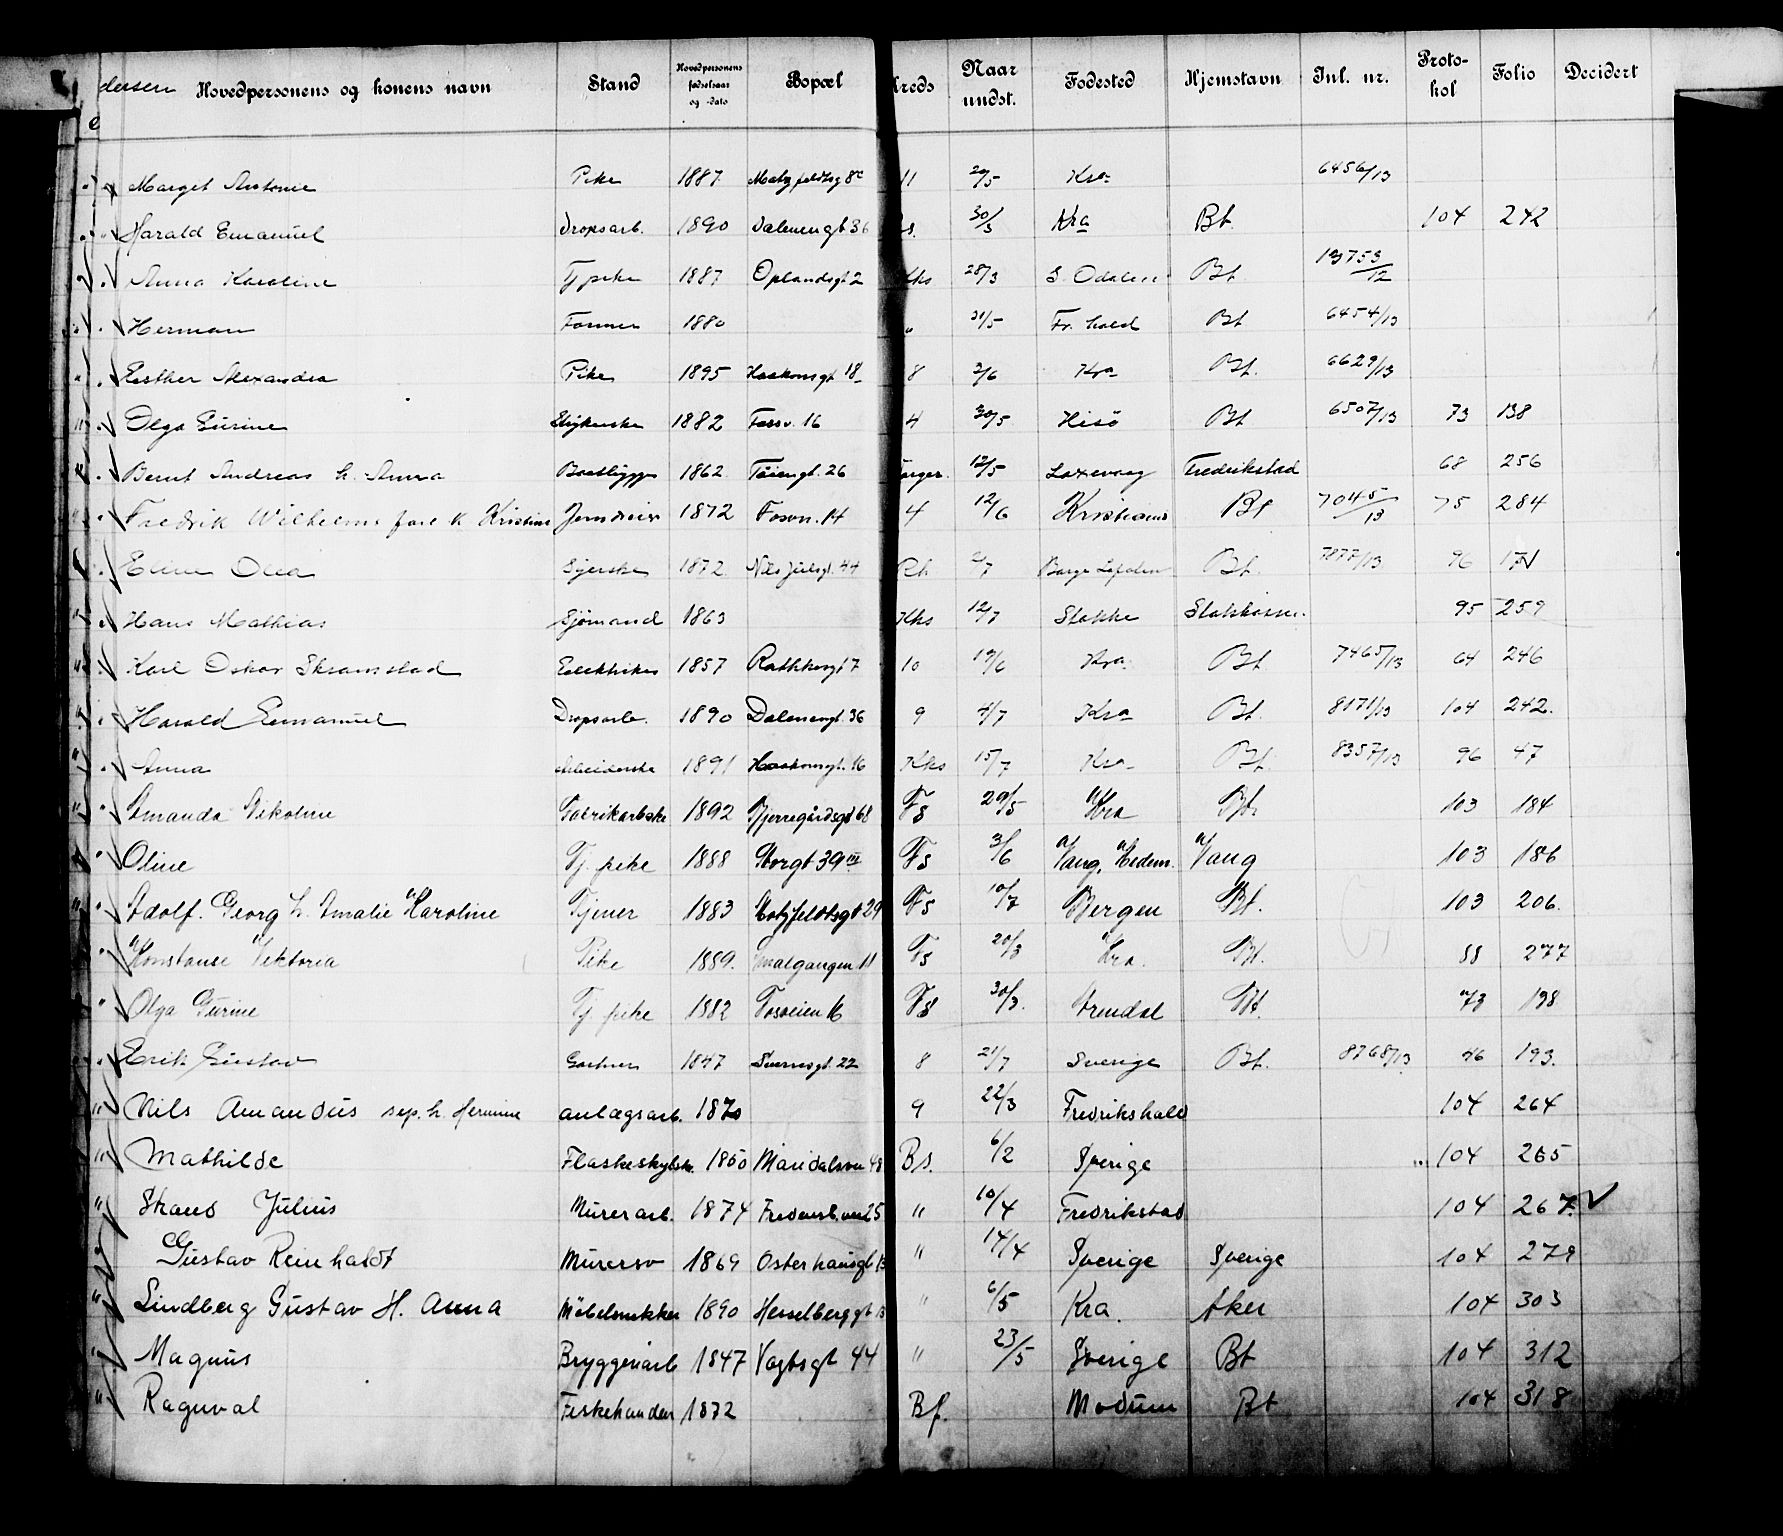 dersen Hovedpersonens og konens navn Stand Hovedpersonens fødselsaar og -dato Bopæl Kreds Naar undst. Fødested Hjemstavn Inl. nr. Protokol Folio Decidert
Marget Antonie Pike 1887 11 29/5 Kra 6456/13
Harald Emanuel Dropsarb. 1890 Dalenengt 36 30/3 Kra Bt. 104 242
Anna Karoline Tj pike 1887 Oplandsgt 2 Kks 28/3 S. Odalen Bt 13753/12
Herman Former 1880 " 31/5 Fr. hald Bt 6454/13
Esther Alexandra Pike 1895 Haakonsgt 18 8 2/6 Kra Bt. 6629/13
Olga Gurine Strykerske 1882 Fossv. 16 4 30/5 Hisö Bt 6507/13 73 138
Bernt Andreas h. Anna Baatbygger 1862 Töiengt. 26 12/5 Laxevaag Fredrikstad 68 256
Fredrik Wilhelm k Kristine Jerndreier 1872 Fosv. 14 4 12/6 Kristians Bt 7045/13 75 284
Syerske 1872 Nils Juelsgt. 44 2/7 Bt. 7877/13 96 171
Hans Mathias Sjömand 1863 Kks 12/7 Stokke 95 259
Karl Oskar Skramstad Elektriker 1857 Rathkesgt 7 10 19/6 Kra Bt 7465/13 64 246
Harald Emanuel Dropsarb. 1890 Dalenengt. 36 9 4/7 Kra Bt. 8171/13 104 242.
Anna Arbeiderske 1891 Haakonsgt. 16 Kks 15/7 Kra Bt. 8357/13 96 47
Amanda Nikoline Fabrikarbske 1892 Bjerregårdsgt 68 Fs 29/5 Kra Bt. 103 184
Oline Tj. pike 1888 Storgt 39 III Fs 3/6 Vang, Hedem. Vang 103 186
Adolf. Georg h. Amalie Karoline Tjener 1883 Hotzfeldtsgt 29 Fs 10/7 Bergen Bt. 103 206.
Konstanse Viktoria Pike 1889. Smalgangen 11 Fs 20/3 Kra. Bt. 88 277
Olga Gurine Tj pike 1882 Fosveien 16 Fs 30/3. Arendal Bt. 73 138
Erik Gustav Gartner 1847 Sverresgt. 22 8 21/7 Sverige Bt. 8768/13 46 193.
" Nils Amandus sep. h. Hermine anlægsarb. 1870 9 22/3 Fredrikshald 104 264
" Mathilde Flaskeskylske 1850 Maridalsvn 48 Bs. 6/2 Sverige 104 265
" Julius Murerarb. 1874 Fredensb. vn 25 " 10/4 Fredrikstad 104 267.
Gustav Reinhaldt Murersv 1869 Osterhausgt 13 " 14/4 Sverige Sverige 104 279
" Lindberg Gustav H. Anna Möbelsnekker 1890 Hesselberggt 13 " 6/5 Kra. Aker 104 303
" Magnus Bryggeriarb 1847 Vogtsgt 44 " 23/5 Sverige Bt 104 312
" Ragnval Fiskehandler 1872 Bf. Modum Bt 104 318